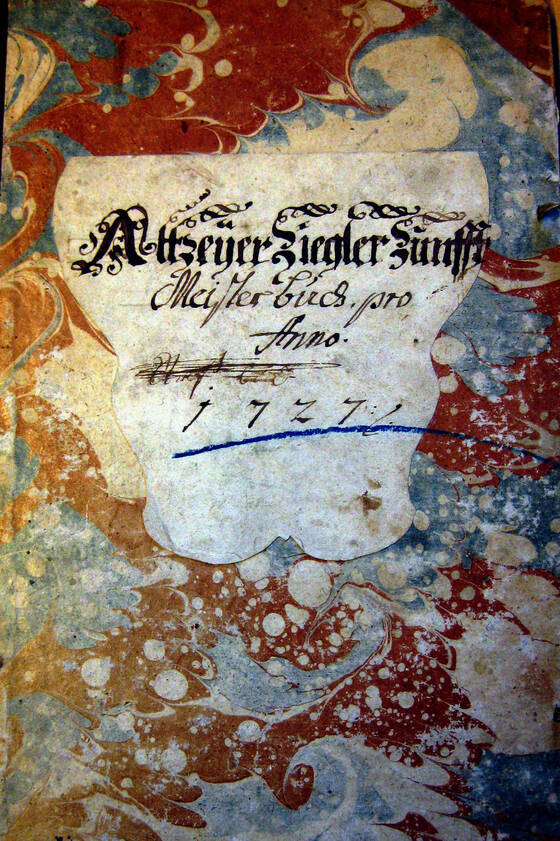 Altzeÿer Ziegler Zunfft
Meister büch. pro
Anno.
1727.